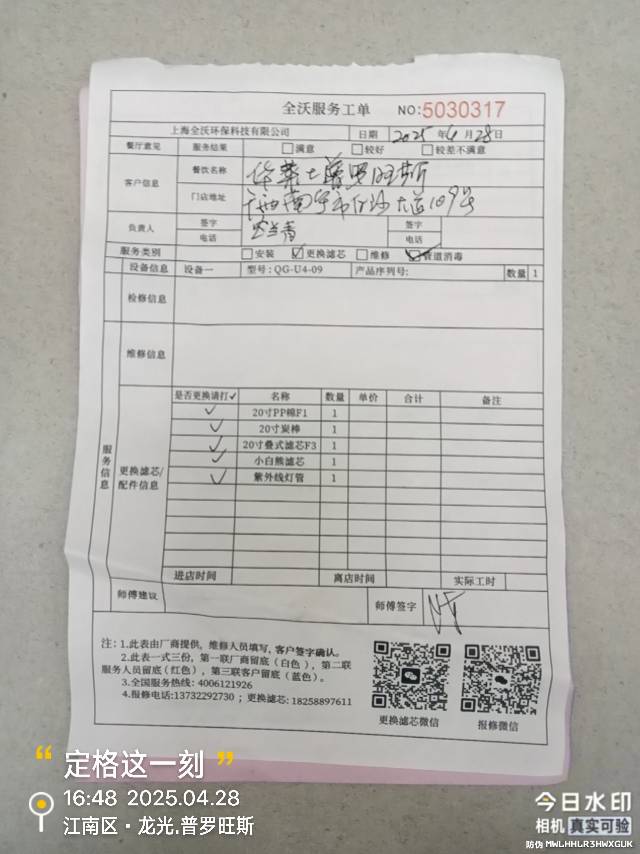 全沃服务工单 NO:5030317
上海全沃环保科技有限公司 日期 2025 年 4 月 28 日
餐厅意见 服务结果 □满意 □较好 □较差不满意
客户信息 餐饮名称 华莱士普罗旺斯
门店地址 广西南宁市白沙大道109号
负责人 签字 签字
电话 电话
服务类别 □安装 ☑更换滤芯 □维修 ☑管道消毒
设备信息 设备一 型号: QG-U4-09 产品序列号: 数量 1
检修信息
维修信息
服务信息
更换滤芯/配件信息
是否更换请打✓ 名称 数量 单价 合计 备注
✓ 20寸PP棉F1 1
✓ 20寸炭棒 1
✓ 20寸叠式滤芯F3 1
✓ 小白熊滤芯 1
✓ 紫外线灯管 1
进店时间 离店时间 实际工时
师傅建议 师傅签字
注: 1.此表由厂商提供, 维修人员填写, 客户签字确认。
2.此表一式三份, 第一联厂商留底 (白色), 第二联
服务人员留底(红色), 第三联客户留底 (蓝色)。
3.全国服务热线: 4006121926
4.报修电话:13732292730 ; 更换滤芯: 18258897611
更换滤芯微信 报修微信
“ 定格这一刻 ”
16:48 2025.04.28
江南区·龙光.普罗旺斯
今日水印
相机 真实可验
防伪 MWLHHLR3HWXGUK